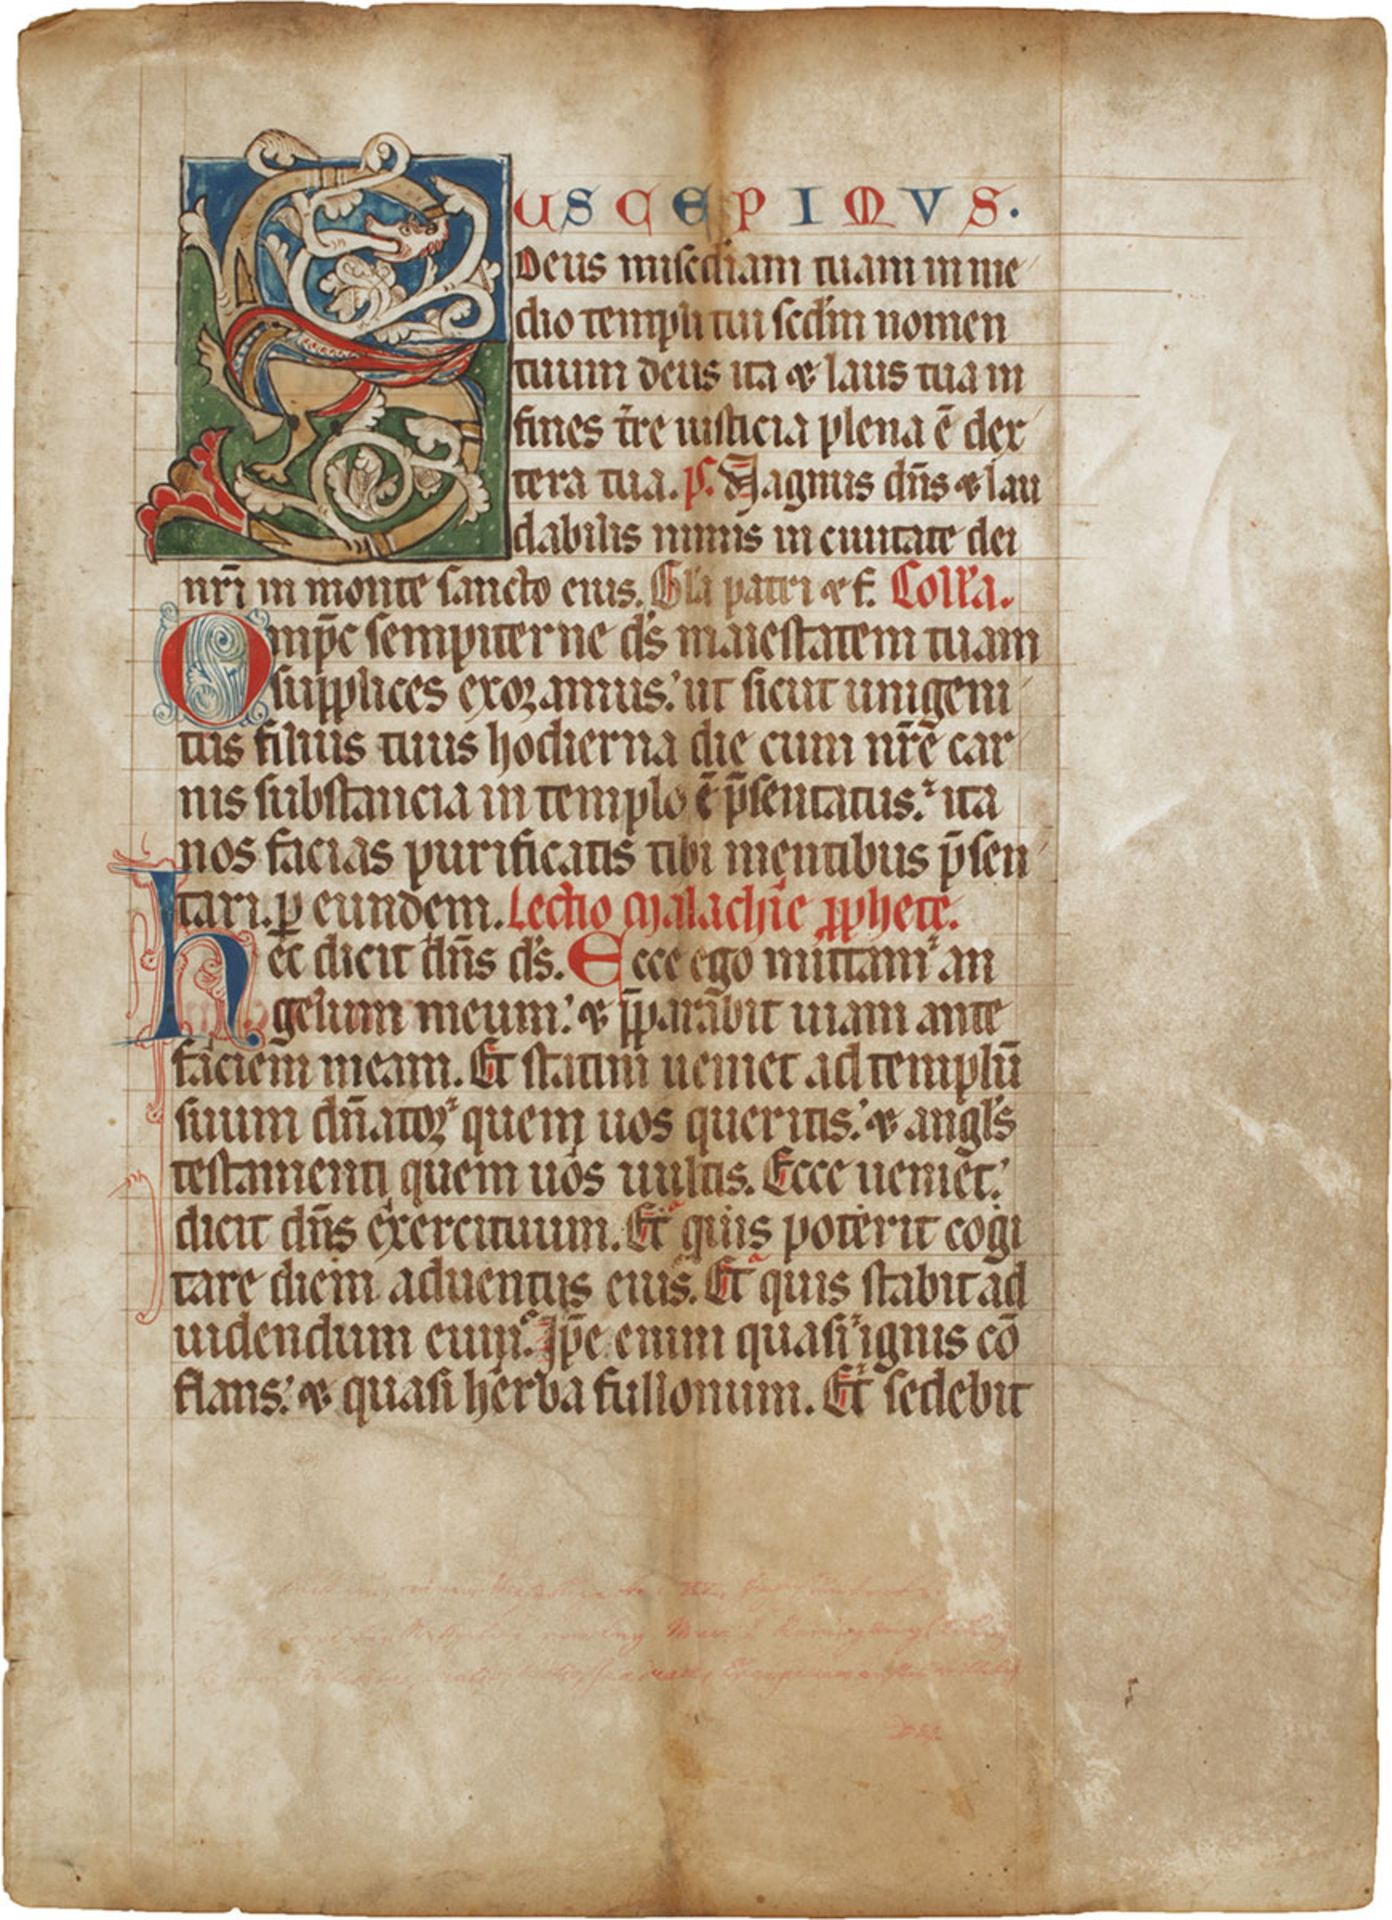 SUSCEPIMVS.
Deus misc̄diam tuam in me
dio templi tui scd̄m nomen
tuum deus ita & laus tua in
fines t̄re iusticia plena ē dex
tera tua. ps. Magnus dn̄s & lau
dabilis nimis in ciuitate dei
nr̄i in monte sancto eius. Gl̄a patri & f. Coll̄a.
Omp̄c sempiterne d̄s maiestatem tuam
supplices exoramus. ut sicut unigeni
tus filius tuus hodierna die cum nr̄ē car
nis substancia in templo ē p̄sentatus. ita
nos facias purificatis tibi mentibus p̄sen
tari. ꝑ eundem. Lectio Malachie ꝓphete.
hec dicit dn̄s d̄s. Ecce ego mittam an
gelum meum. & p̄parabit uiam ante
faciem meam. Et statim ueniet ad templū
suum dn̄ator quem uos queritis. & angl̄s
testamenti quem uos uultis. Ecce ueniet.
dicit dn̄s exercituum. Et quis poterit cogi
tare diem aduentus eius. Et quis stabit ad
uidendum eum. Ip̄e enim quasi ignis cō
flans. & quasi herba fullonum. Et sedebit